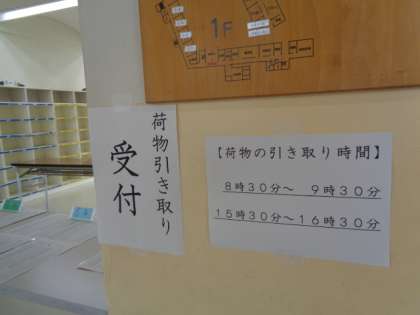 1F
荷物引き取り
受付
【荷物の引き取り時間】
8時30分～ 9時30分
15時30分～16時30分